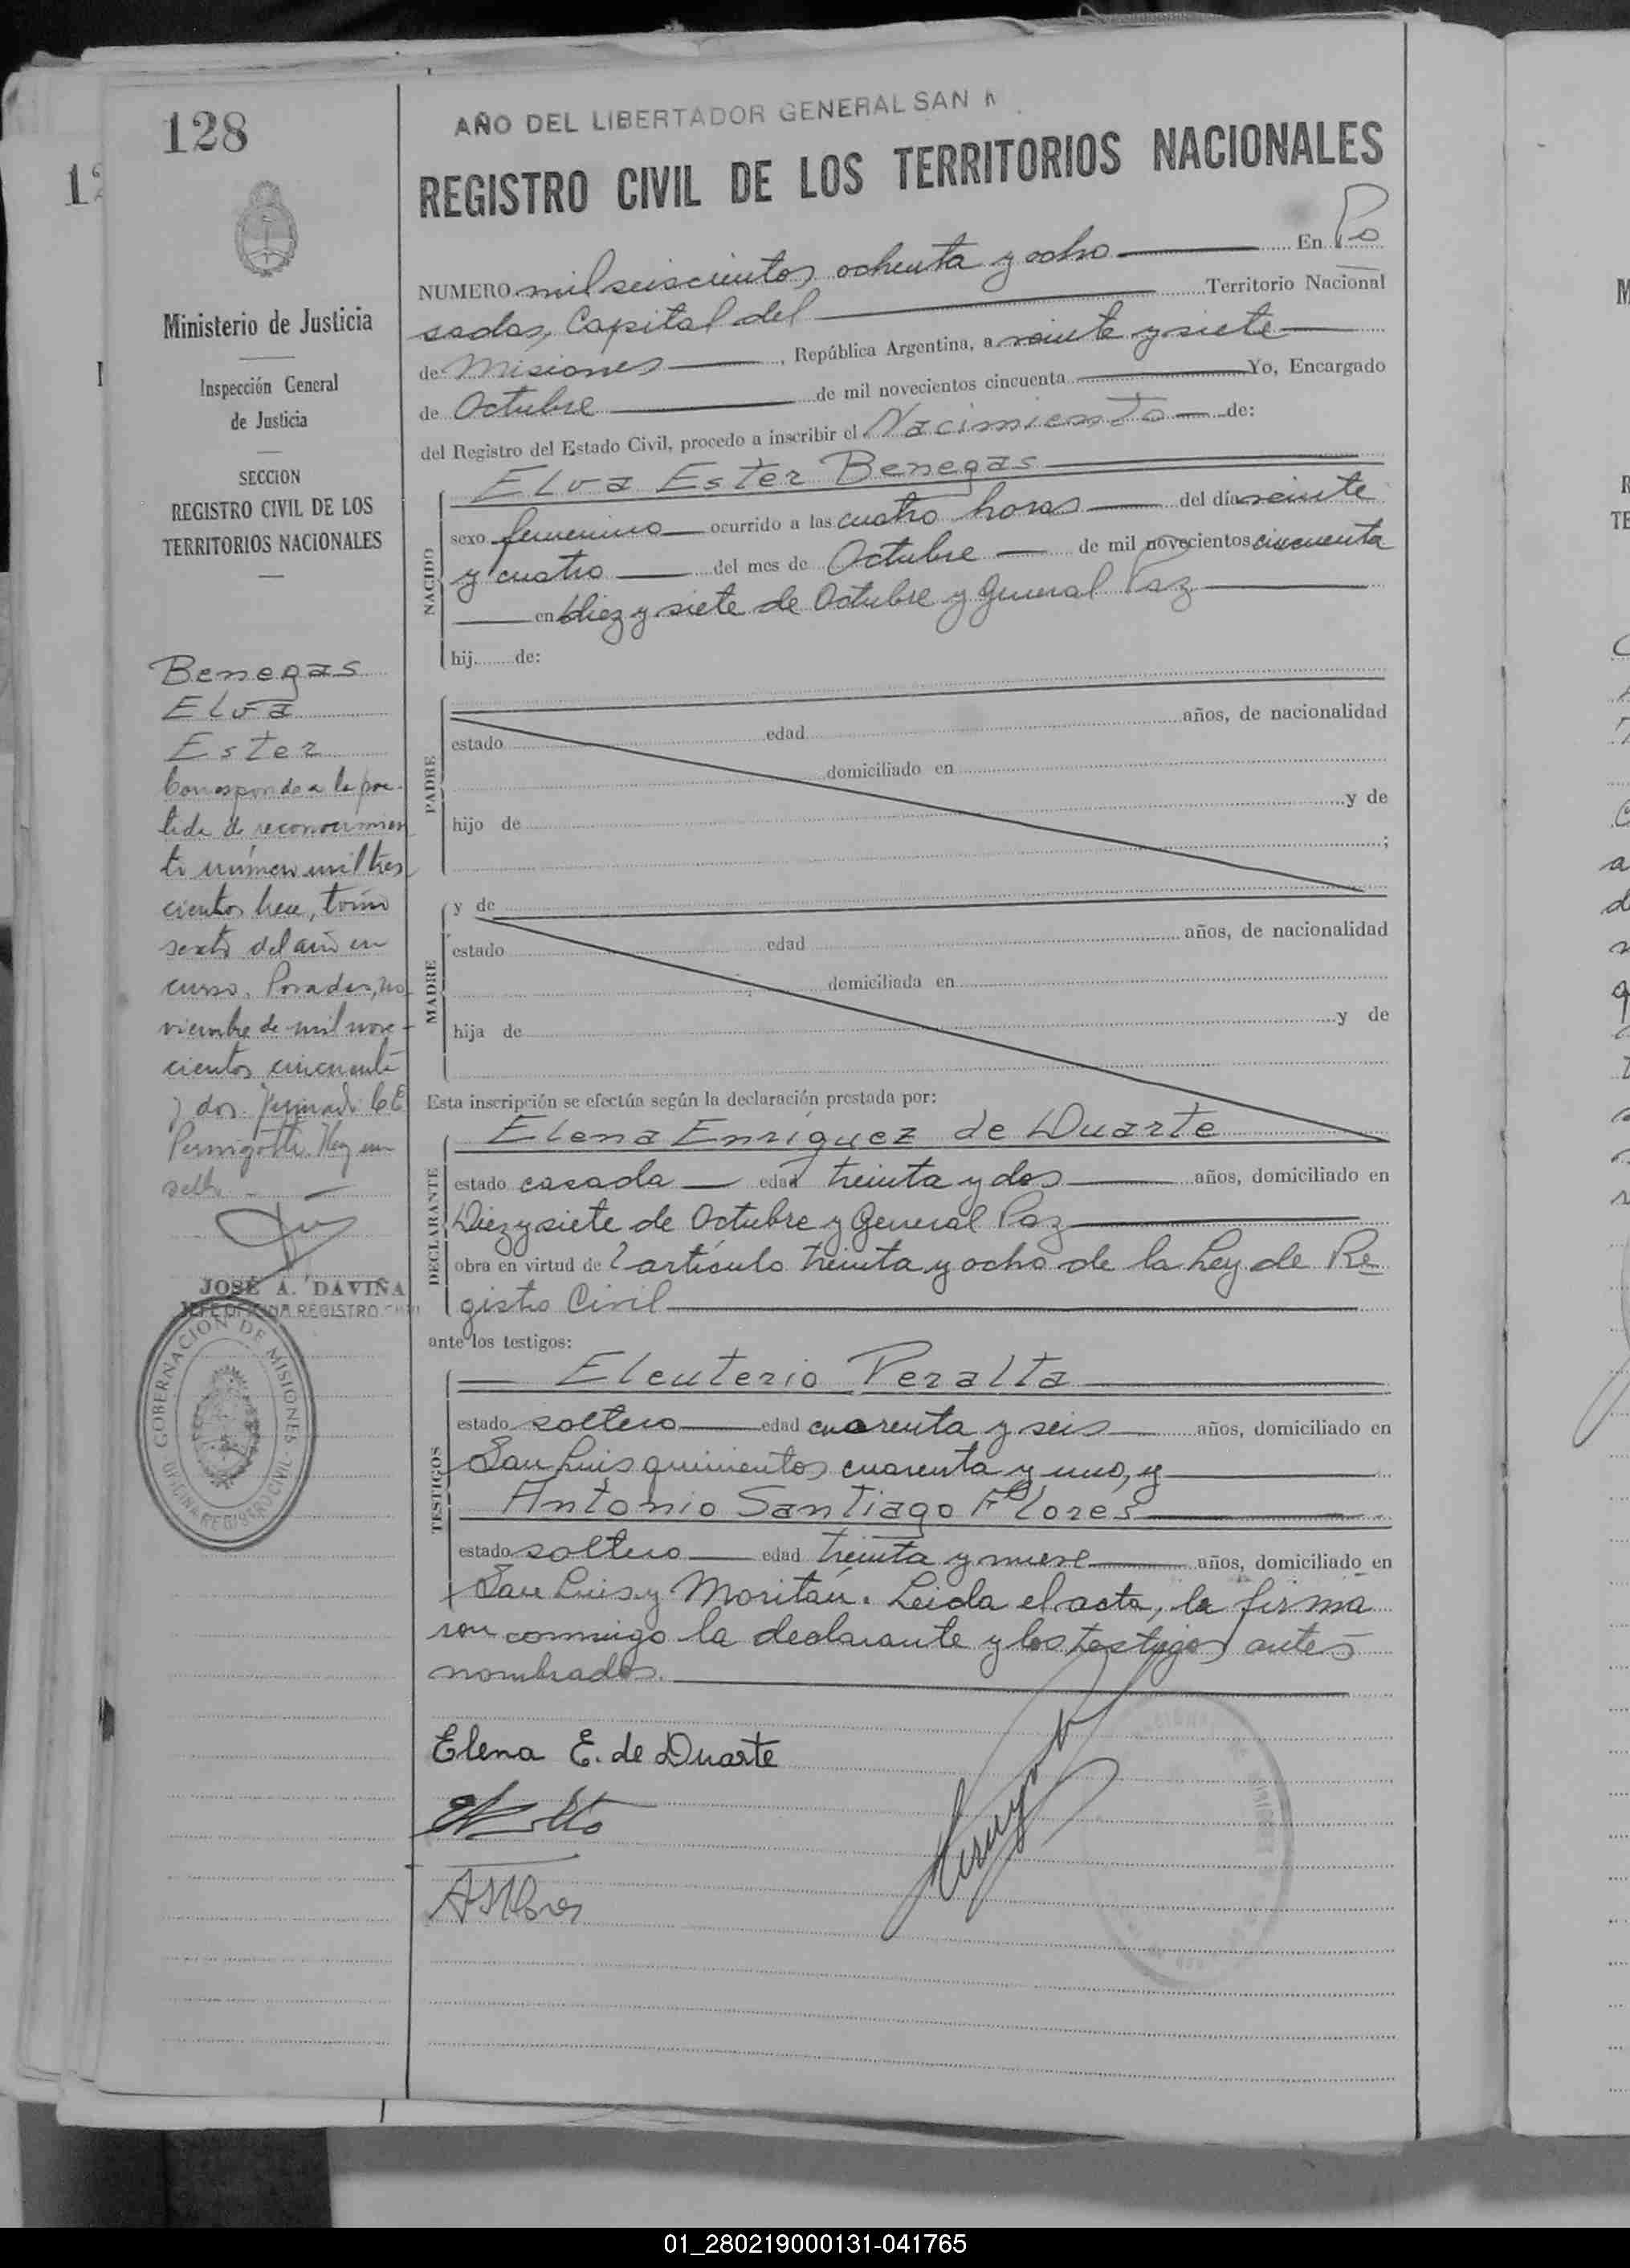 128
Ministerio de Justicia
Inspección General
de Justicia
SECCION
REGISTRO CIVIL DE LOS
TERRITORIOS NACIONALES
Benegas
Elva
Ester
Corresponde a la par-
tida de reconocimien
to número mil tres
cientos trece, tomo
sexto del año en
curso. Posadas, no
viembre de mil nove-
cientos cincuenta
y dos. firmado C E
Pernigotti. Hay un
sello. -
JOSÉ A. DAVIÑA
JEFE OFICINA REGISTRO CIVIL
GOBERNACION DE MISIONES
OFICINA REGISTRO CIVIL
AÑO DEL LIBERTADOR GENERAL SAN
REGISTRO CIVIL DE LOS TERRITORIOS NACIONALES
NUMERO mil seiscientos ochenta y ocho En Po
sadas, Capital del Territorio Nacional
de Misiones, República Argentina, a veinte y siete
de Octubre de mil novecientos cincuenta Yo, Encargado
del Registro del Estado Civil, procedo a inscribir el Nacimiento de:
NACIDO
Elva Ester Benegas
sexo femenino ocurrido a las cuatro horas del día veinte
y cuatro del mes de Octubre de mil novecientos cincuenta
en Diez y siete de Octubre y General Paz
hij de:
PADRE
estado edad años, de nacionalidad
domiciliado en
hijo de y de
;
MADRE
y de
estado edad años, de nacionalidad
domiciliada en
hija de y de
Esta inscripción se efectúa según la declaración prestada por:
DECLARANTE
Elena Enriquez de Duarte
estado casada edad treinta y dos años, domiciliado en
Diez y siete de Octubre y General Paz
obra en virtud de l artículo treinta y ocho de la Ley de Re
gistro Civil
ante los testigos:
TESTIGOS
Eleuterio Peralta
estado soltero edad cuarenta y seis años, domiciliado en
San Luis quinientos cuarenta y uno, y
Antonio Santiago Flores
estado soltero edad treinta y nueve años, domiciliado en
San Luis y Moritán. Leida el acta, la firma
ron conmigo la declarante y los testigos antes
nombrados.
Elena E. de Duarte
ASFlores
01_280219000131-041765